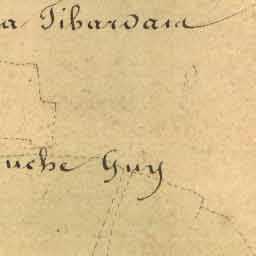 a Tibardaia
uche Guy